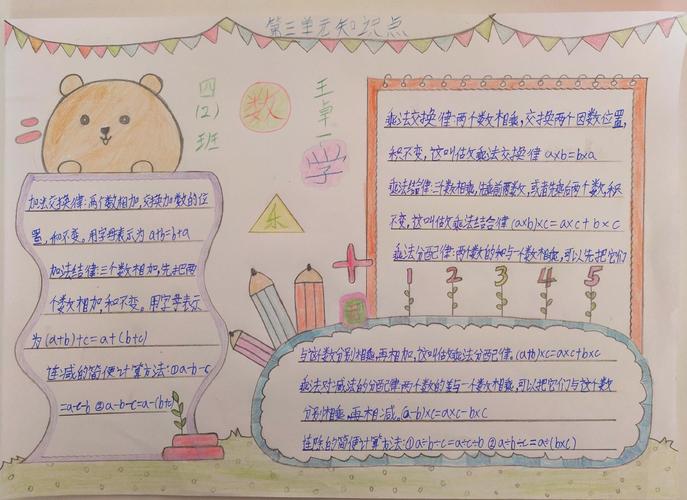 第三单元知识点
四(2)班
数
学
乐
王卓一
加法交换律:两个数相加,交换加数的位
置,和不变。用字母表示为a+b=b+a
加法结合律:三个数相加,先把两
个数相加,和不变。用字母表示
为(a+b)+c=a+(b+c)
连减的简便计算方法:①a-b-c
=a-c-b ②a-b-c=a-(b+c)
乘法交换律:两个数相乘,交换两个因数位置,
积不变,这叫做乘法交换律a×b=b×a
乘法结合律:三个数相乘,先乘前两数,或者先乘后两个数,积
不变,这叫做乘法结合律(a×b)×c=a×c+b×c
乘法分配律:两个数的和与一个数相乘,可以先把它们
1 2 3 4 5
与这个数分别相乘,再相加,这叫做乘法分配律。(a+b)×c=a×c+b×c
乘法对减法的分配律:两个数的差与一个数相乘,可以把它们与这个数
分别相乘,再相减。(a-b)×c=a×c-b×c
连除的简便计算方法:①a÷b÷c=a÷c÷b ②a÷b÷c=a÷(b×c)